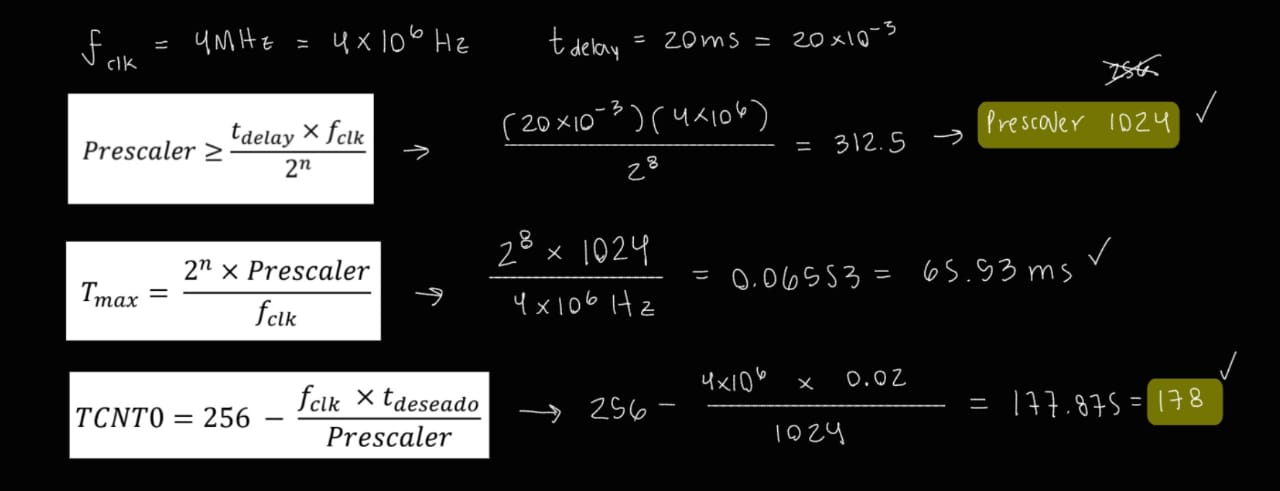 f_clk = 4MHz = 4×10^6 Hz t_delay = 20ms = 20×10^-3
256
Prescaler ≥ (t_delay × f_clk) / 2^n → (20×10^-3)(4×10^6) / 2^8 = 312.5 → Prescaler 1024 ✓
T_max = (2^n × Prescaler) / f_clk → (2^8 × 1024) / (4×10^6 Hz) = 0.06553 = 65.53 ms ✓
TCNT0 = 256 − (f_clk × t_deseado) / Prescaler → 256 − (4×10^6 × 0.02) / 1024 = 177.875 = 178 ✓